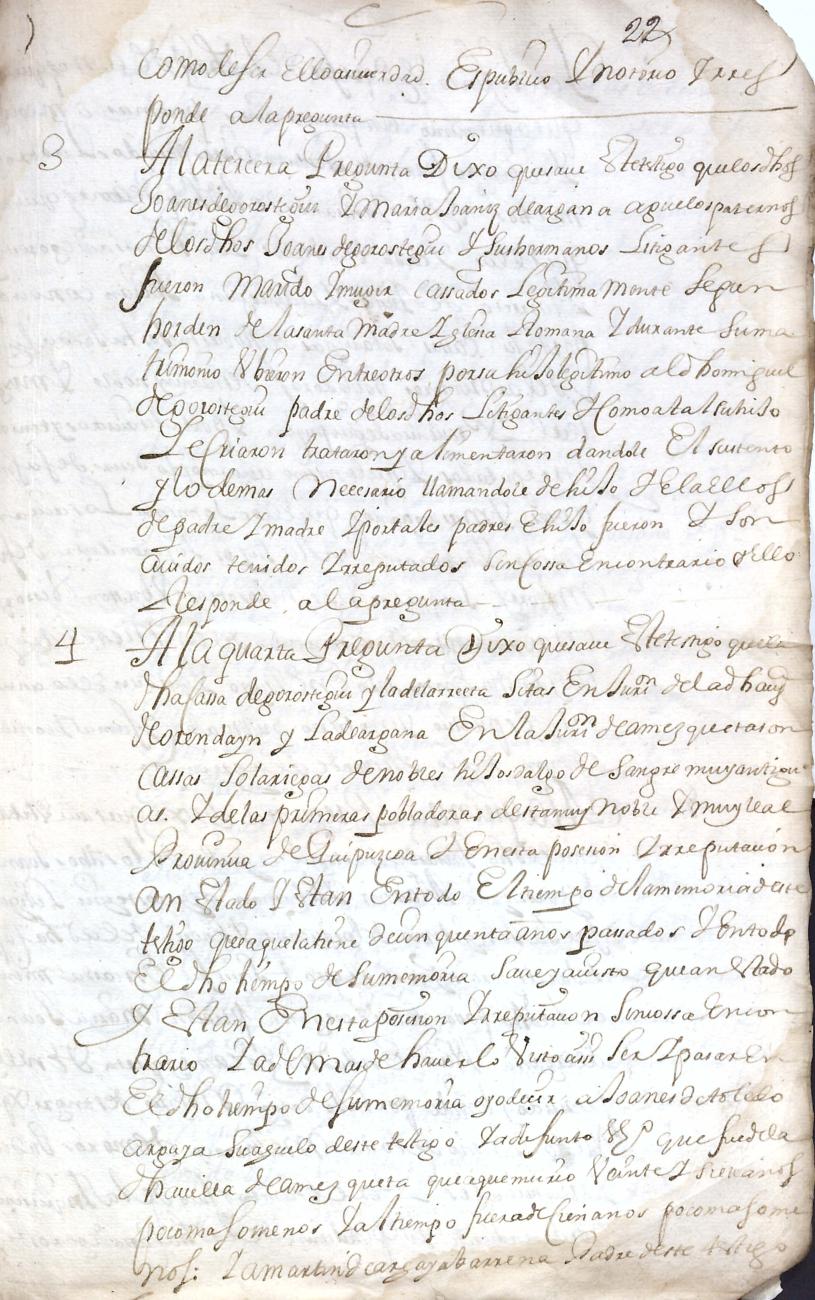 22
como de ser ello asi verdad. Es publico Y notorio Y rres
ponde a la pregunta
3 A la tercera Pregunta Dixo que save Este testigo que los dhos
Joanes de gorostegui Y Maria Joaniz de argana aguelos paternos
de los dhos Joanes de gorostegui Y sus hermanos Litigantes
fueron Marido Y muger Cassados Legitima mente Segun
horden de la santa Madre Yglesia Rromana Y durante Su ma
trimonio Vbieron Entre otros por su hijo legitimo al dho miguel
de gorostegui padre de los dhos Litigantes Y Como a tal su hijo
Le Criaron trataron y alimentaron dandole El sustento
y lo demas Necesario llamandole de hijo Y el a ellos
de padre Y madre Y por tales padres E hijo fueron Y son
avidos tenidos Y rreputados Sin Cossa En contrario Y ello
Responde a la pregunta
4 A la quarta Pregunta Dixo que save Este testigo que la
dha Cassa de gorostegui y la de larreta Sitas En Jurion de la dha
de orendayn y La de argana En la Jurion de amezqueta son
Cassas Solariegas de nobles hijos dalgo de Sangre muy antigu
as. Y de las primeras pobladoras desta muy Noble Y muy leal
Provincia de Guipuzcoa Y En esta posesion Y rreputacion
an Estado Y Estan En todo El tiempo de la memoria deste
testigo que sa que la tiene de cinquenta años passados Y En todo
El dho tiempo de su memoria Save y a visto que an Estado
Y Estan En esta posesion Y rreputacion Sin cossa En con
trario Y a demas de haverlo Visto assi Ser Y pasar En
El dho tiempo de su memoria oyo decir a Joanes de
argaya Su aguelo deste testigo Ya difunto que fue de la
dha villa de amezqueta que a que murio Veinte Y siete años
poco mas o menos Y al tiempo fuera de Cien anos poco mas o me
nos: Y a martin de argaya barrena Padre deste testigo